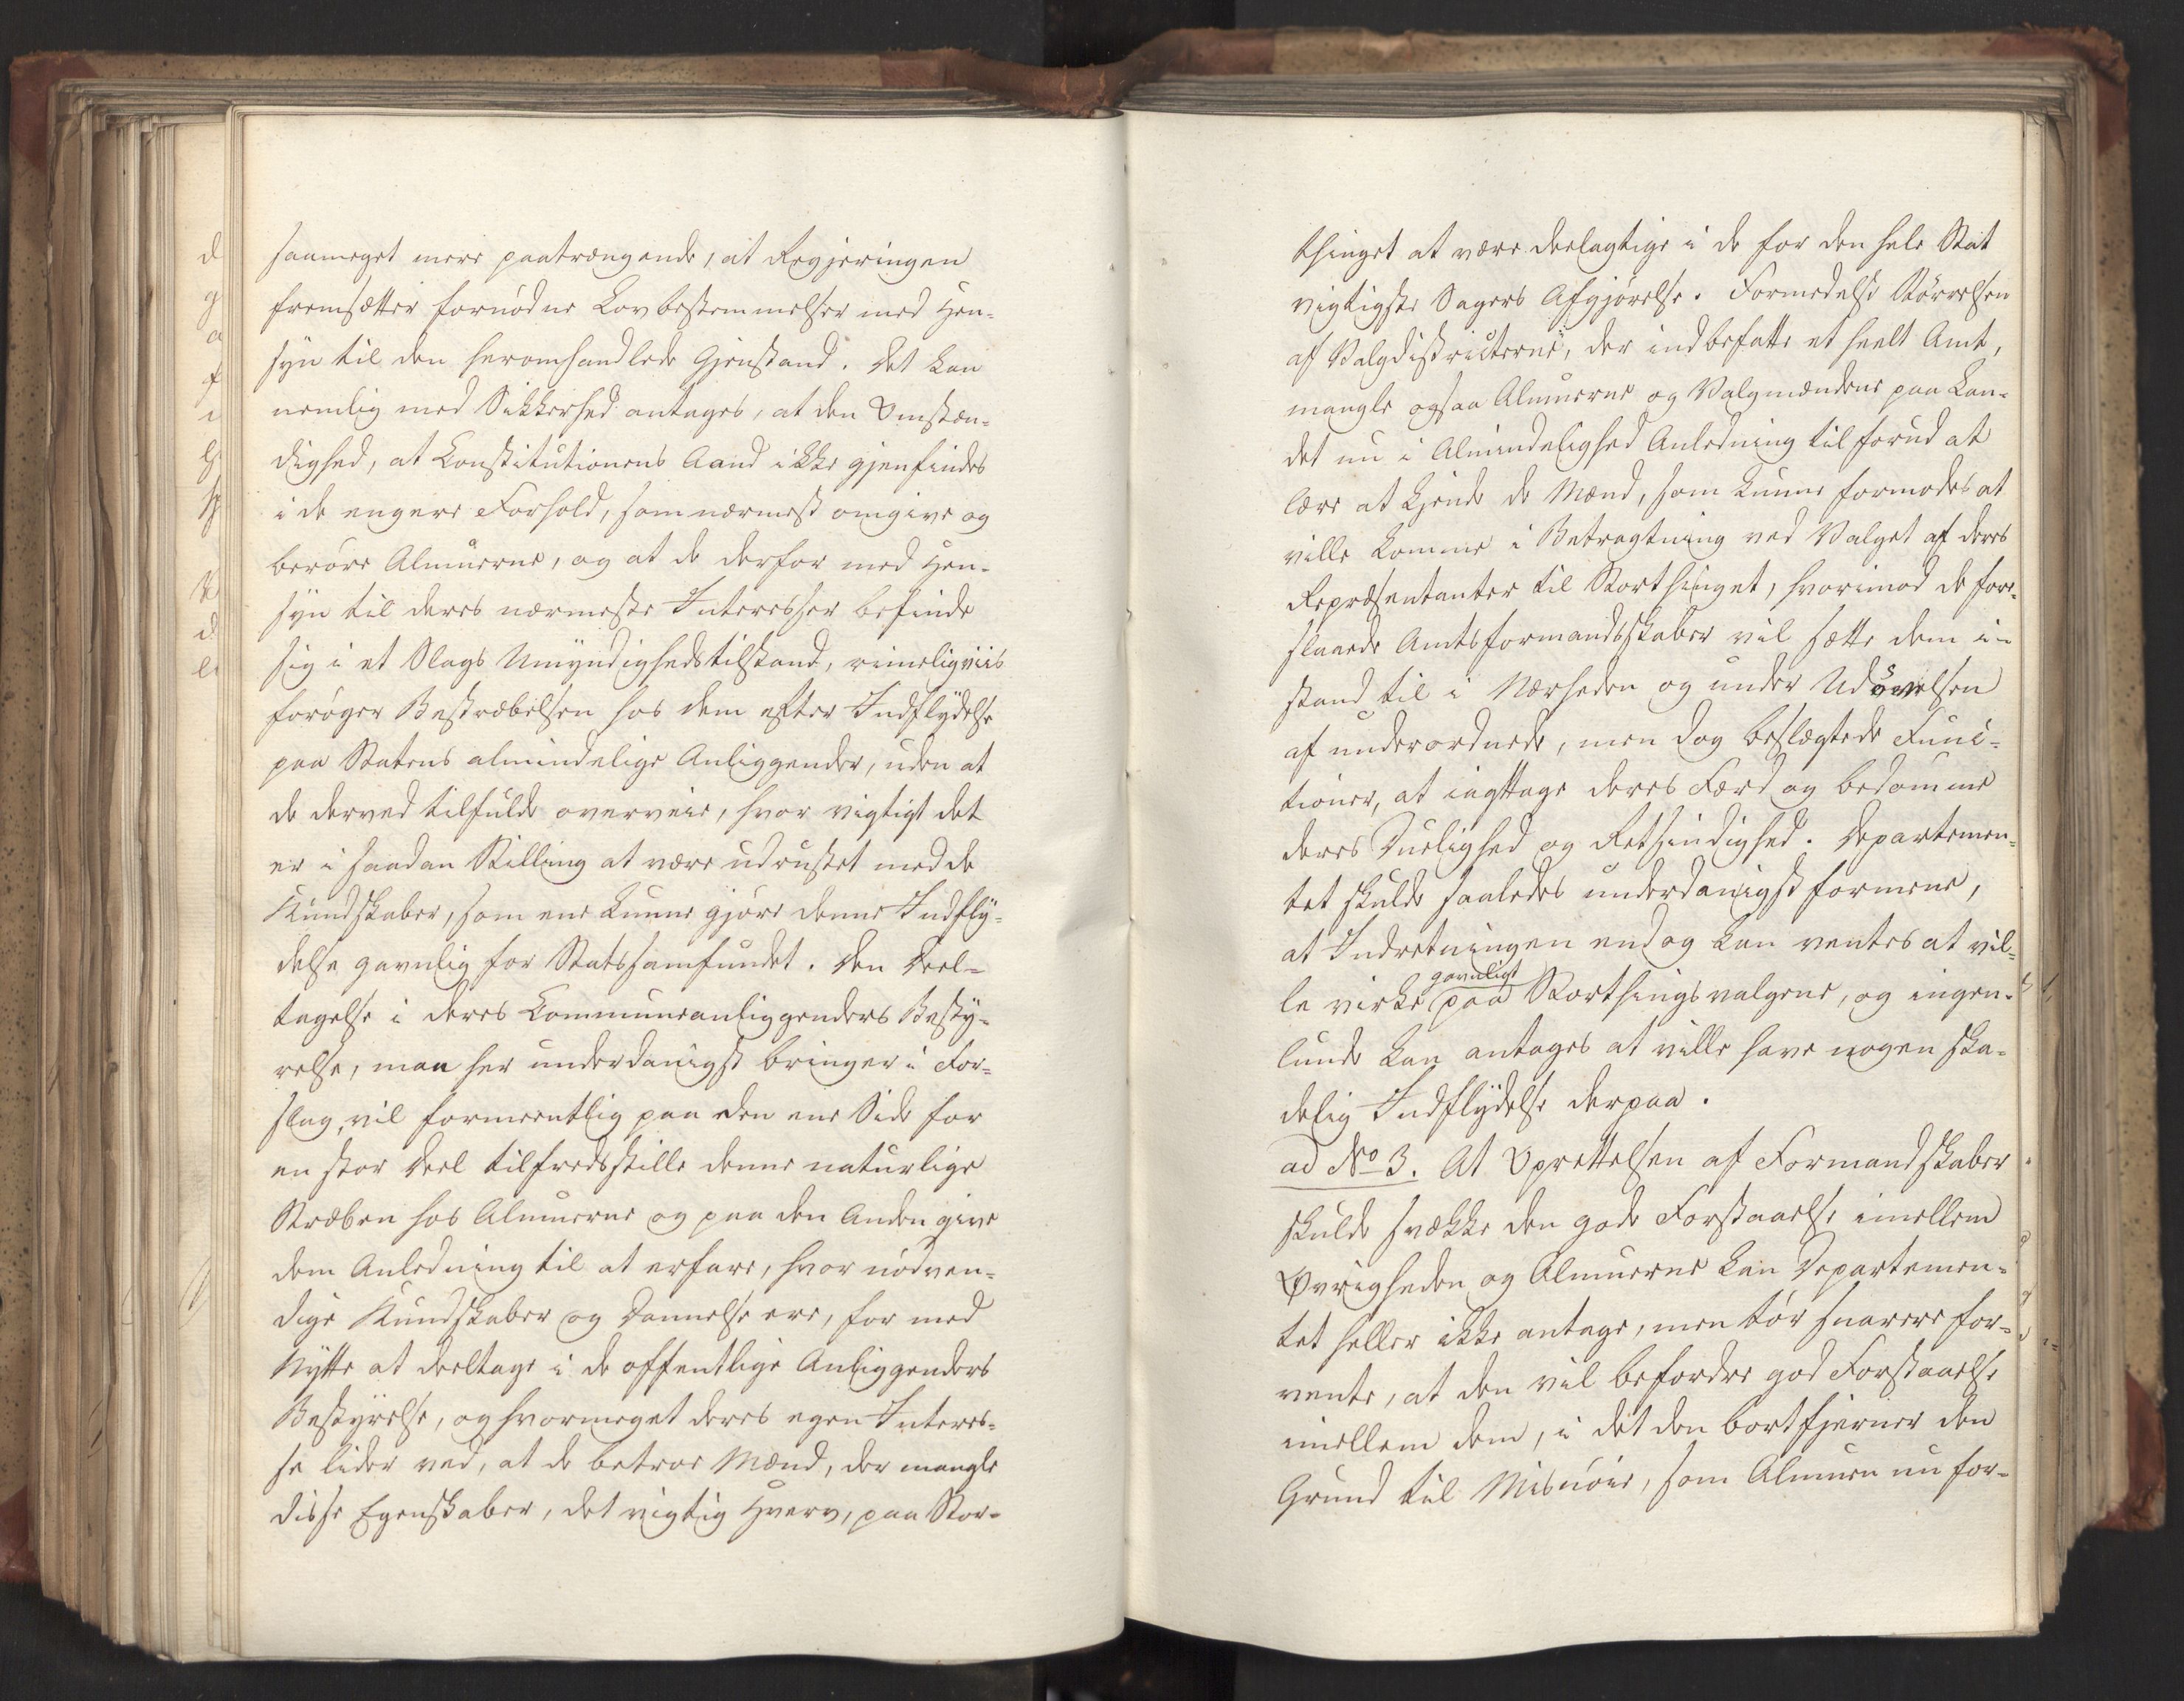 saameget mere paatrængende, at Regjeringen
fremsætter fornødne Lovbestemmelser med Hen-
syn til den heromhandlede Gjenstand. Det kan
nemlig med Sikkerhed antages, at den Omstæn-
dighed, at Constitutionens Aand ikke gjenfindes
i de engere Forhold, som nærmest omgive og
berøre Almuerne, og at de derfor med Hen-
syn til deres nærmeste Interesser befinde
sig i et Slags Umyndighedstilstand, rimeligviis
forøger Bestræbelsen hos dem efter Indflydelse
paa Statens almindelige Anliggender, uden at
de derved tilfulde overveie, hvor vigtigt det
er i saadan Stilling at være udrustet med de
Kundskaber, som ene kunne gjøre denne Indfly-
delse gavnlig for Statssamfundet. Den Deel-
tagelse i deres Communeanliggenders Besty-
relse, man her underdanigst bringer i For-
slag, vil formeentlig paa den ene Side for
en stor Deel tilfredsstille denne naturlige
Stræben hos Almuerne og paa den Anden give
dem Anledning til at erfare, hvor nødven-
dige Kundskaber og Dannelse ere, for med
Nytte at deeltage i de offentlige Anliggenders
Bestyrelse, og hvormeget deres egen Interes-
se lider ved, at de betroe Mænd, der mangle
disse Egenskaber, det vigtig Hverv, paa Stor-
thinget at være deelagtige i de for den hele Stat
vigtigste Sagers Afgjørelse. Formedelst Størrelsen
af Valgdistricterne, der indbefatte et heelt Amt,
mangle ogsaa Almuerne og Valgmændene paa Lan-
det nu i Almindelighed Anledning til forud at
lære at kjende de Mænd, som kunne formodes at
ville komme i Betragtning ved Valget af deres
Repræsentanter til Storthinget, hvorimod de fore-
slaaede Amtsformandsskaber vil sætte dem i-
stand til i Nærheden og under Udøvelsen
af underordnede, men dog beslægtede Func-
tioner, at iagttage deres Færd og bedømme
deres Duelighed og Retsindighed. Departemen-
tet skulde saaledes underdanigst formene,
at Indretningen endog kan ventes at vil-
le virke gavnligt paa Storthingsvalgene, og ingen-
lunde kan antages at ville have nogen ska-
delig Indflydelse derpaa.
ad No 3. At Oprettelsen af Formandskaber
skulde svække den gode Forstaaelse imellem
Øvrigheden og Almuerne kan Departemen-
tet heller ikke antage, men tør snarere for-
vente, at den vil befordre god Forstaaelse
imellem dem, i det den bortfjerner den
Grund til Misnøie, som Almuen nu for-